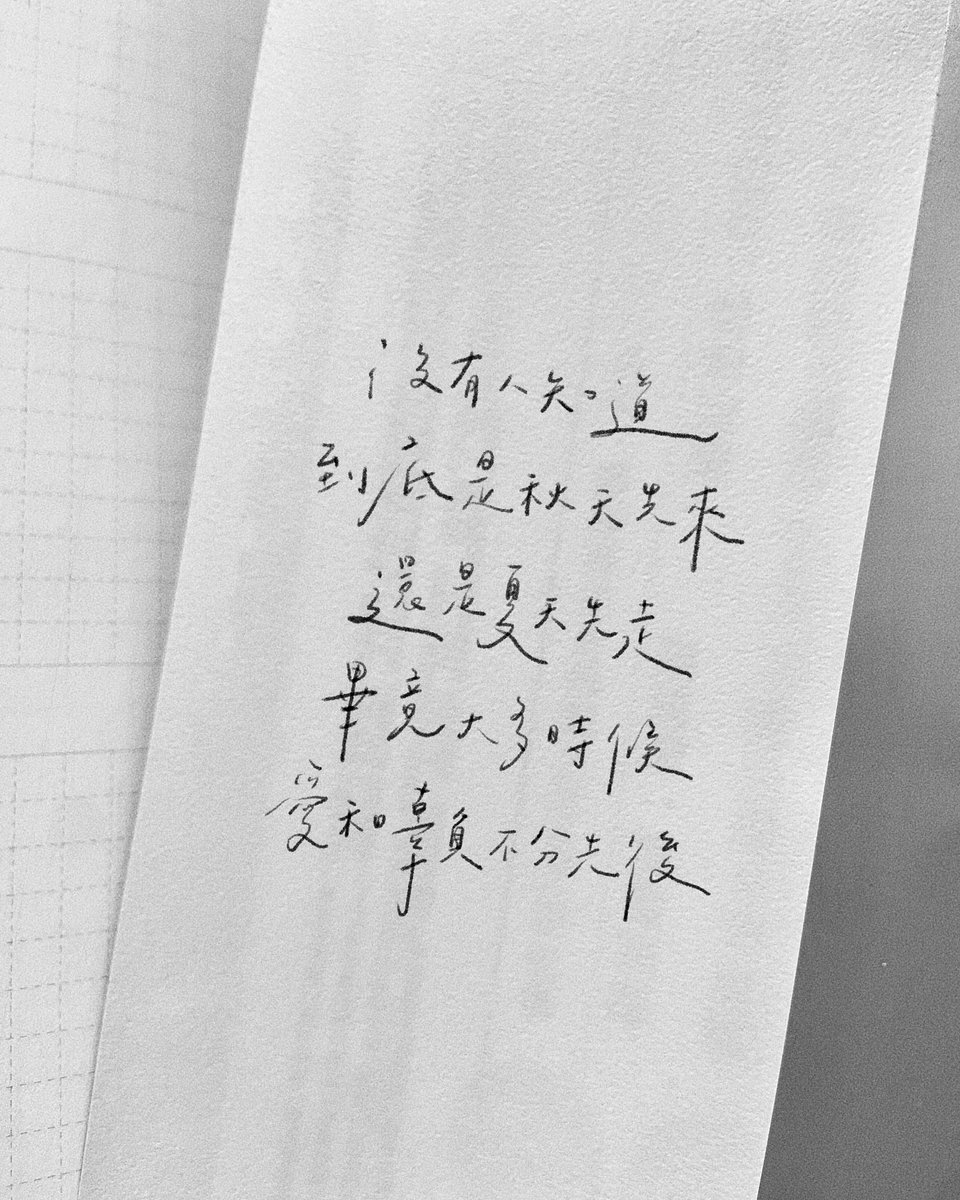 沒有人知道
到底是秋天先來
還是夏天先走
畢竟大多時候
愛和辜負不分先後